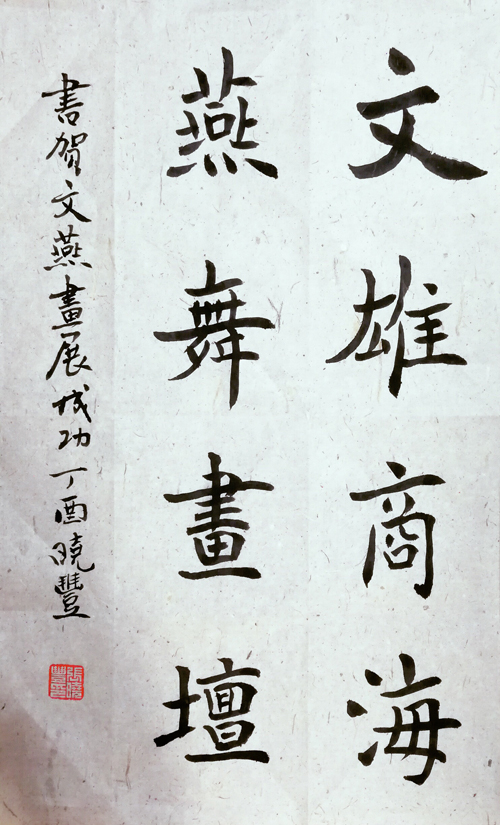 文雄商海
燕舞畫壇
書贺文燕畫展成功丁酉曉豐